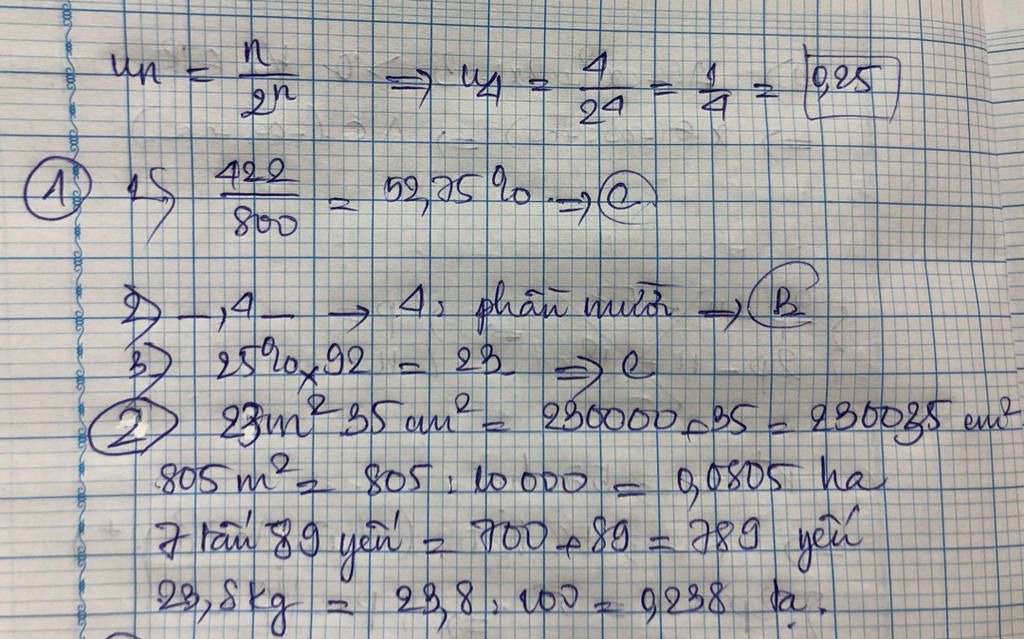 uₙ = n/2ⁿ ⇒ u₄ = 4/2⁴ = 1/4 = 0,25
① 1) 422/800 = 52,75% → C
2) _,4_ → 4: phần mười → B
3) 25% × 92 = 23 ⇒ C
② 23m² 35cm² = 230000 + 35 = 230035 cm²
805 m² = 805 : 10 000 = 0,0805 ha
7 tấn 89 yến = 700 + 89 = 789 yến
23,8 kg = 23,8 : 100 = 0,238 tạ.